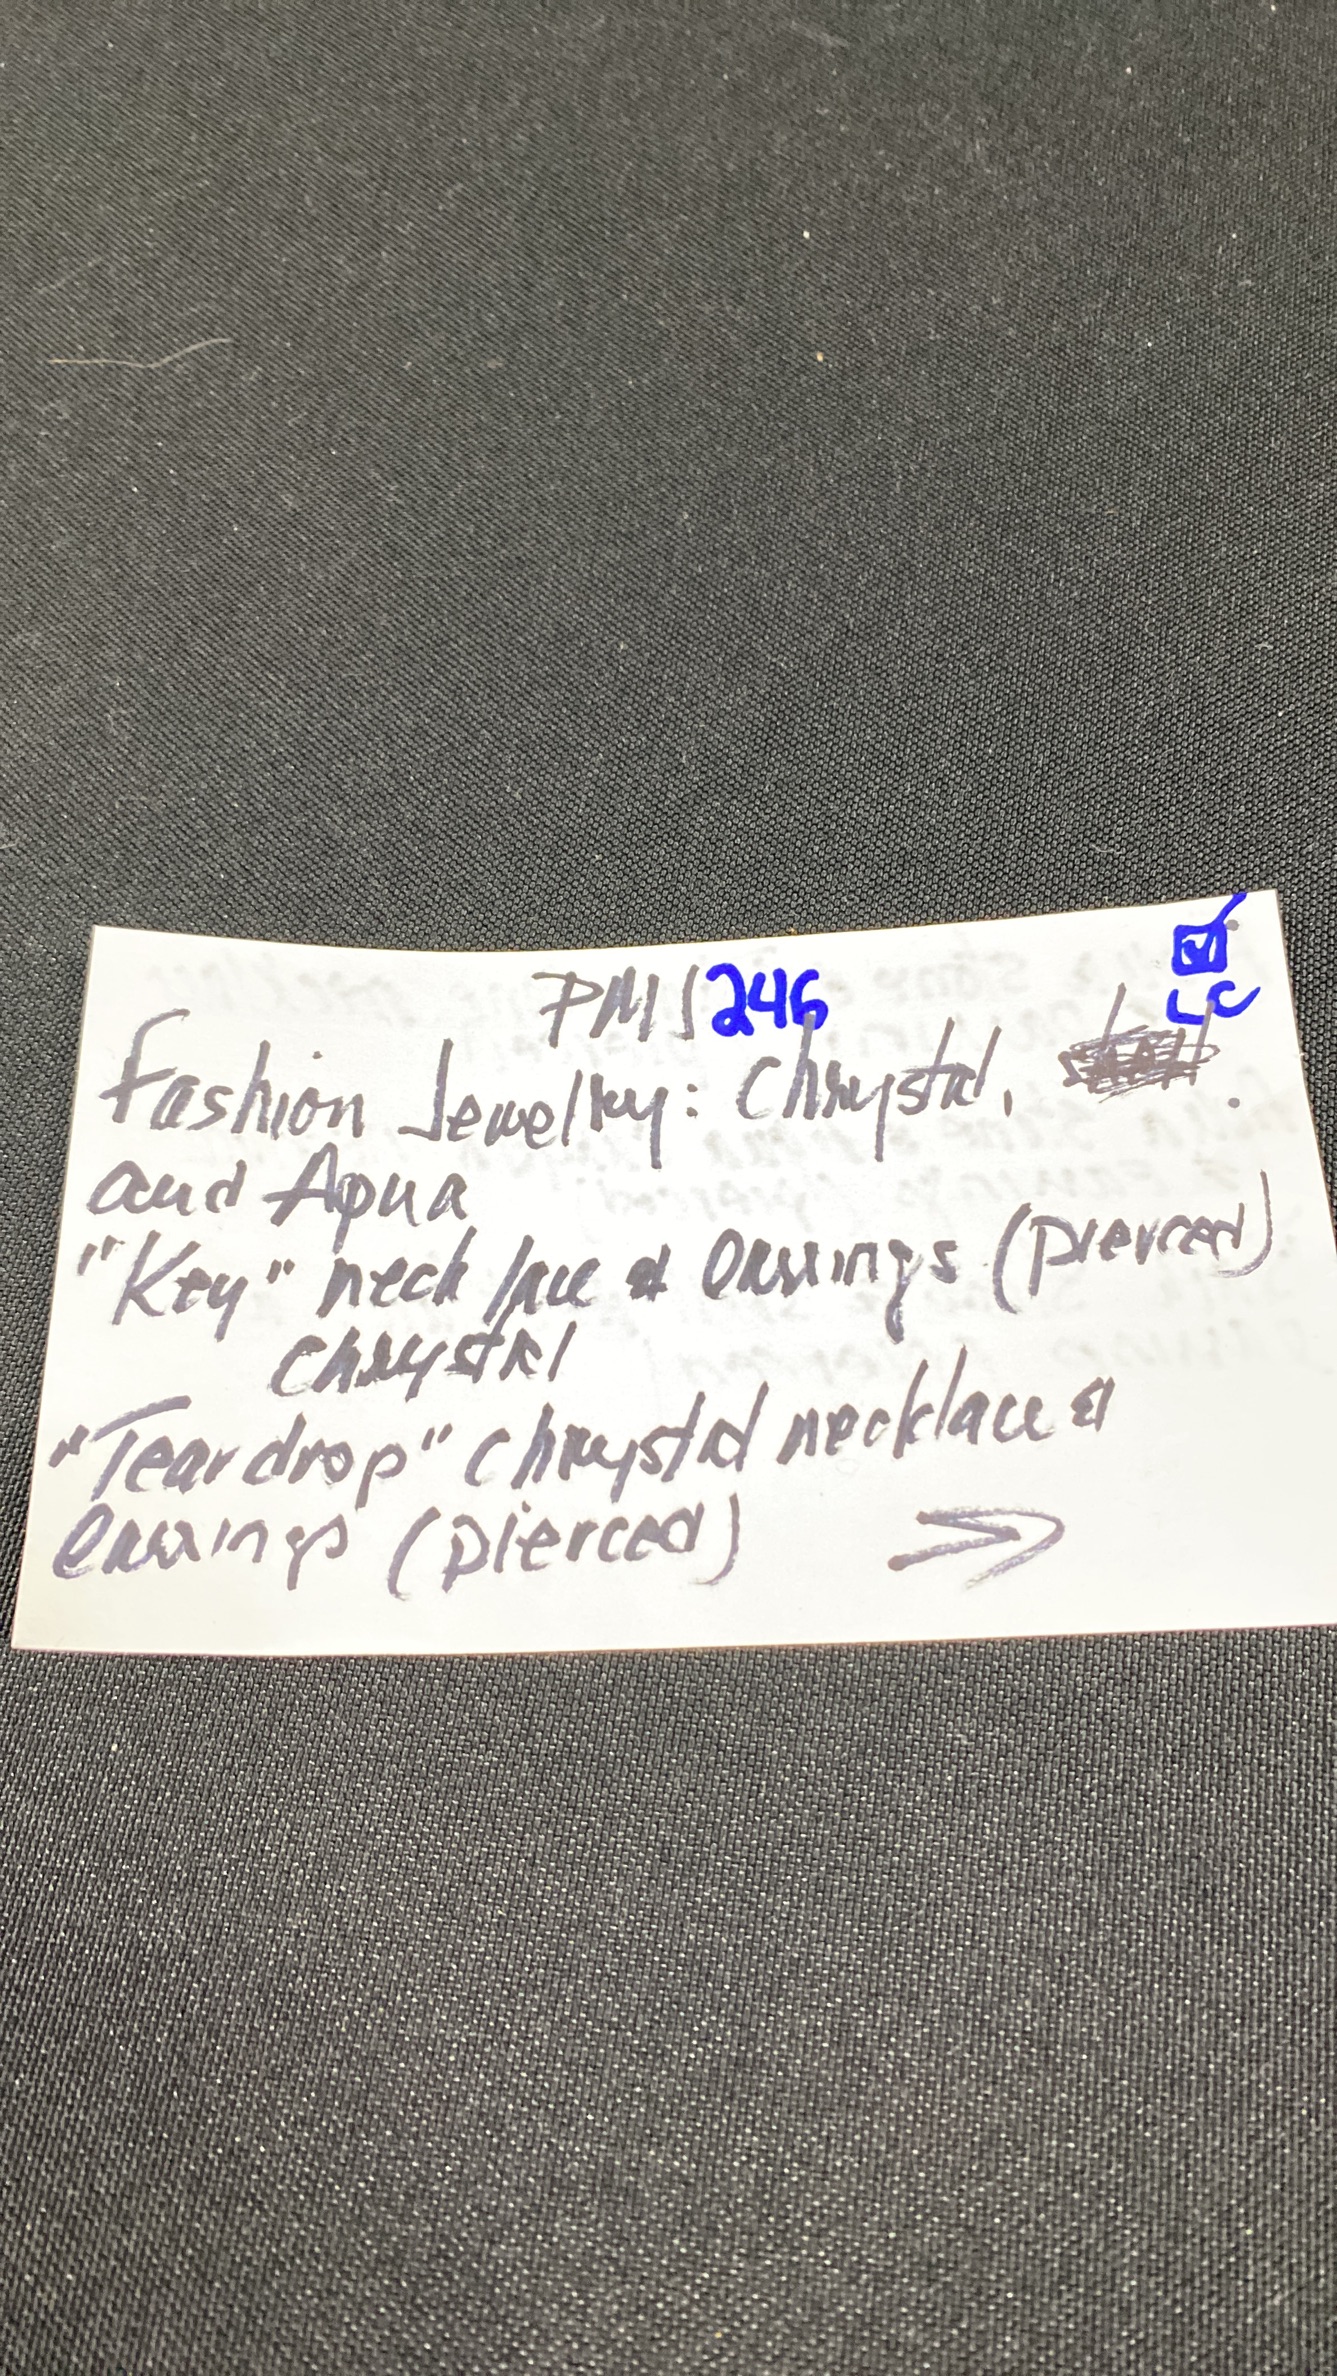 PMJ246
LC
Fashion Jewelry: Chrystal,
and Aqua
"Key" necklace & earrings (pierced)
chrystal
"Teardrop" chrystal necklace &
earrings (pierced)